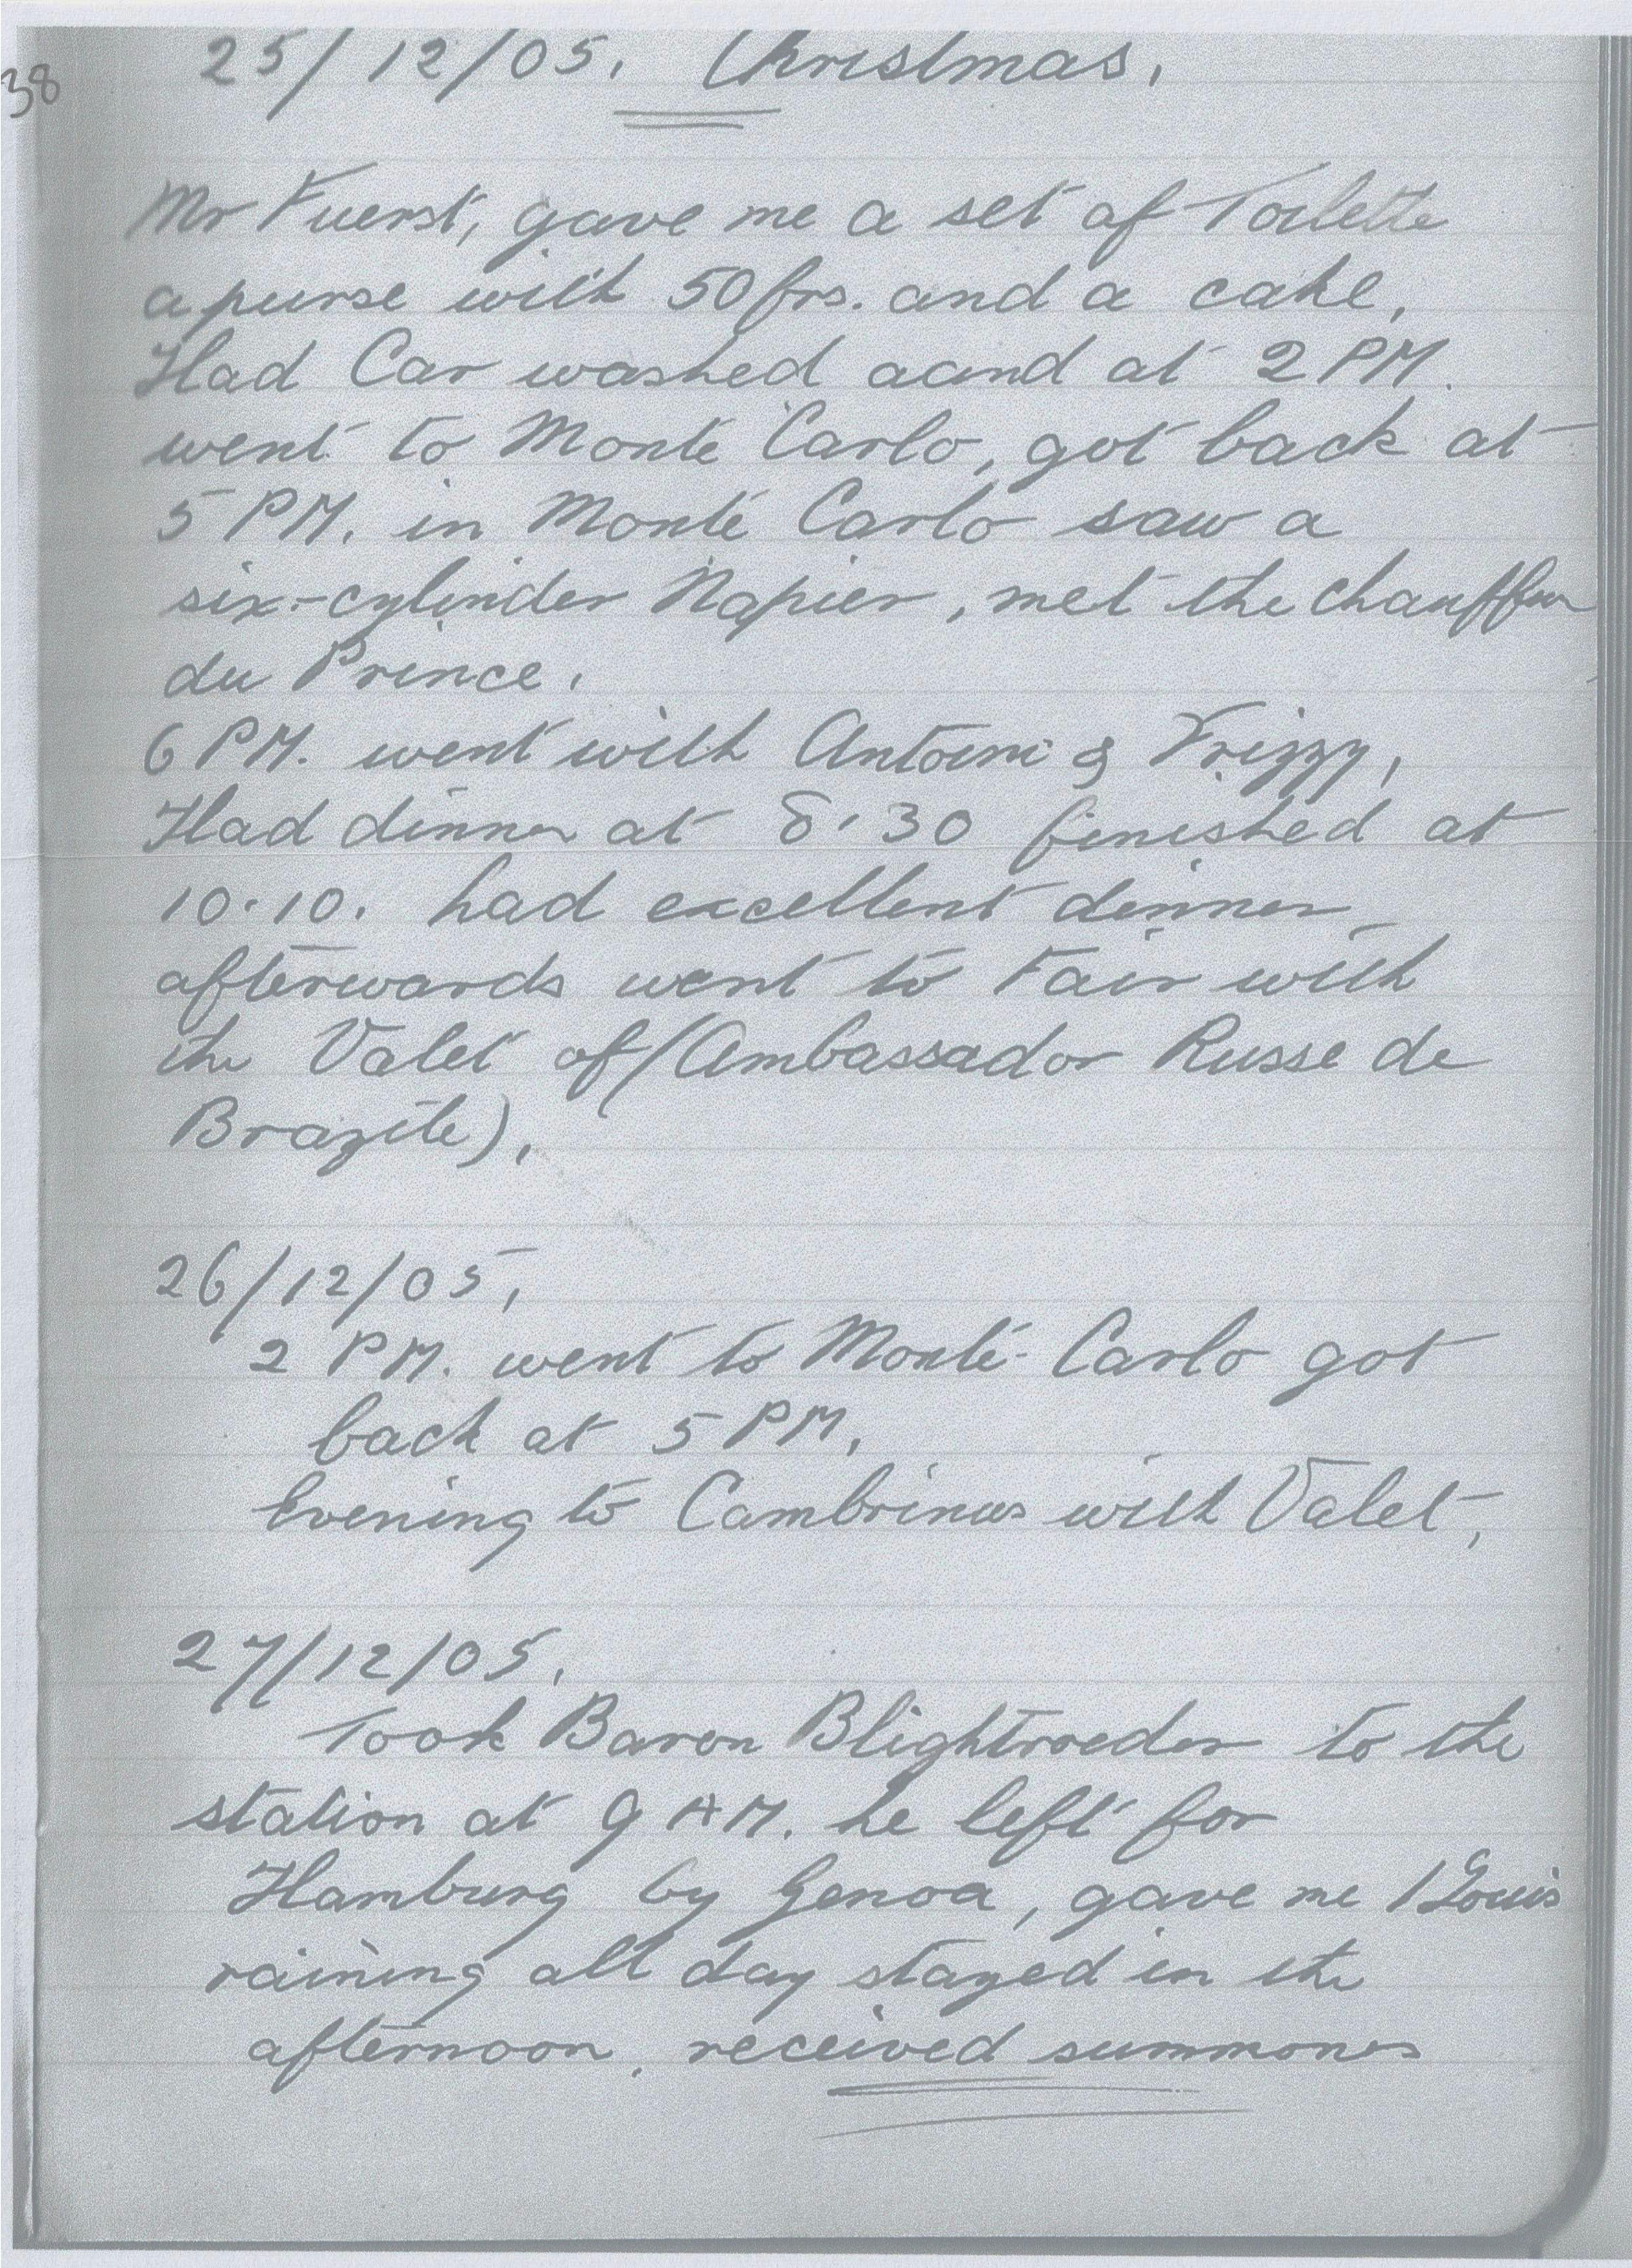 38
25/12/05. Christmas.
Mr Fuerst, gave me a set of Toilette
a purse with 50 frs. and a cake,
Had Car washed aand at 2 PM.
went to Monte Carlo, got back at
5 PM. in Monte Carlo saw a
six-cylinder Napier, met the chauffeur
du Prince.
6 PM. went with Antoini & Frizzy,
Had dinner at 8.30 finished at
10.10. had excellent dinner
afterwards went to Fair with
the Valet of (Ambassador Russe de
Brazile).
26/12/05,
2 PM. went to Monte-Carlo got
back at 5 PM.
Evening to Cambrinus with Valet,
27/12/05.
Took Baron Blightroeder to the
station at 9 AM. he left for
Hamburg by Genoa, gave me 1 Louis
raining all day stayed in the
afternoon. received summones